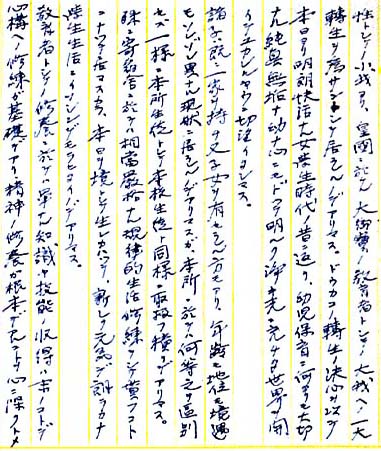 性トシテノ小我ヨリ、皇国ニ於ケル大御宝ノ教育者トシテノ大我ヘノ一大
転生ヲ為サントシテ居ラレルノデアリマス。ドウカコノ転生ノ決心ヲ以ッテ
本日ヨリ明朗快活ナ女学生時代ノ昔ニ返リ、幼児保育ニ何ヨリモ大切
ナ純真無垢ナ幼ナ心ニモドッテ明ルク浄ク光ニ充サレタ世界ヲ開
イテイタダクコトヲ切望イタシマス。
諸子ハ既ニ一家ヲ持ッテ父子女ヲ有セラレル方モアリ、年齢モ地位モ境遇
モソレゾレ異ナル現状ニ居ラレルノデアリマスガ本所ニ於テハ何等之ヲ区別
セズ一様ニ本所生徒トシテ本校生徒ト同様ニ取扱フ積リデアリマス。
殊ニ寄宿舎ニ於テハ相当厳格ナ規律的生活修練ヲシテ貰フコト
ニナッテ居マスカラ、本日ヲ境トシテ生レカハッタ新シイ元気デ朗ラカナ
学生生活ニイソシンデモラヒタイノデアリマス。
教育者トシテノ修養ニ於テハ単ナル知識ヤ技能ノ収得ハ末ノコトデ
心構ヘノ修練ガ基礎デアリ精神ノ修養ガ根本デアルコトヲ心ニ深クトメ